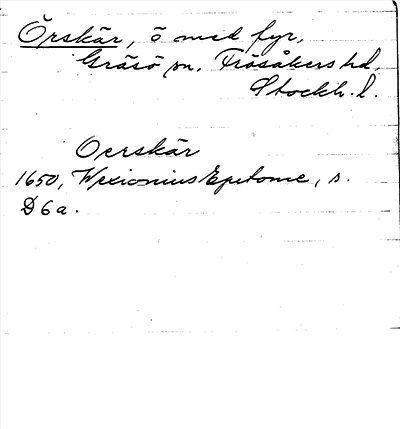 Örskär, ö med fyr,
Gräsö sn. Frösåkers hd,
Stockh. l.
Oerskär
1650, Wexionius Epitome, s.
D6a.